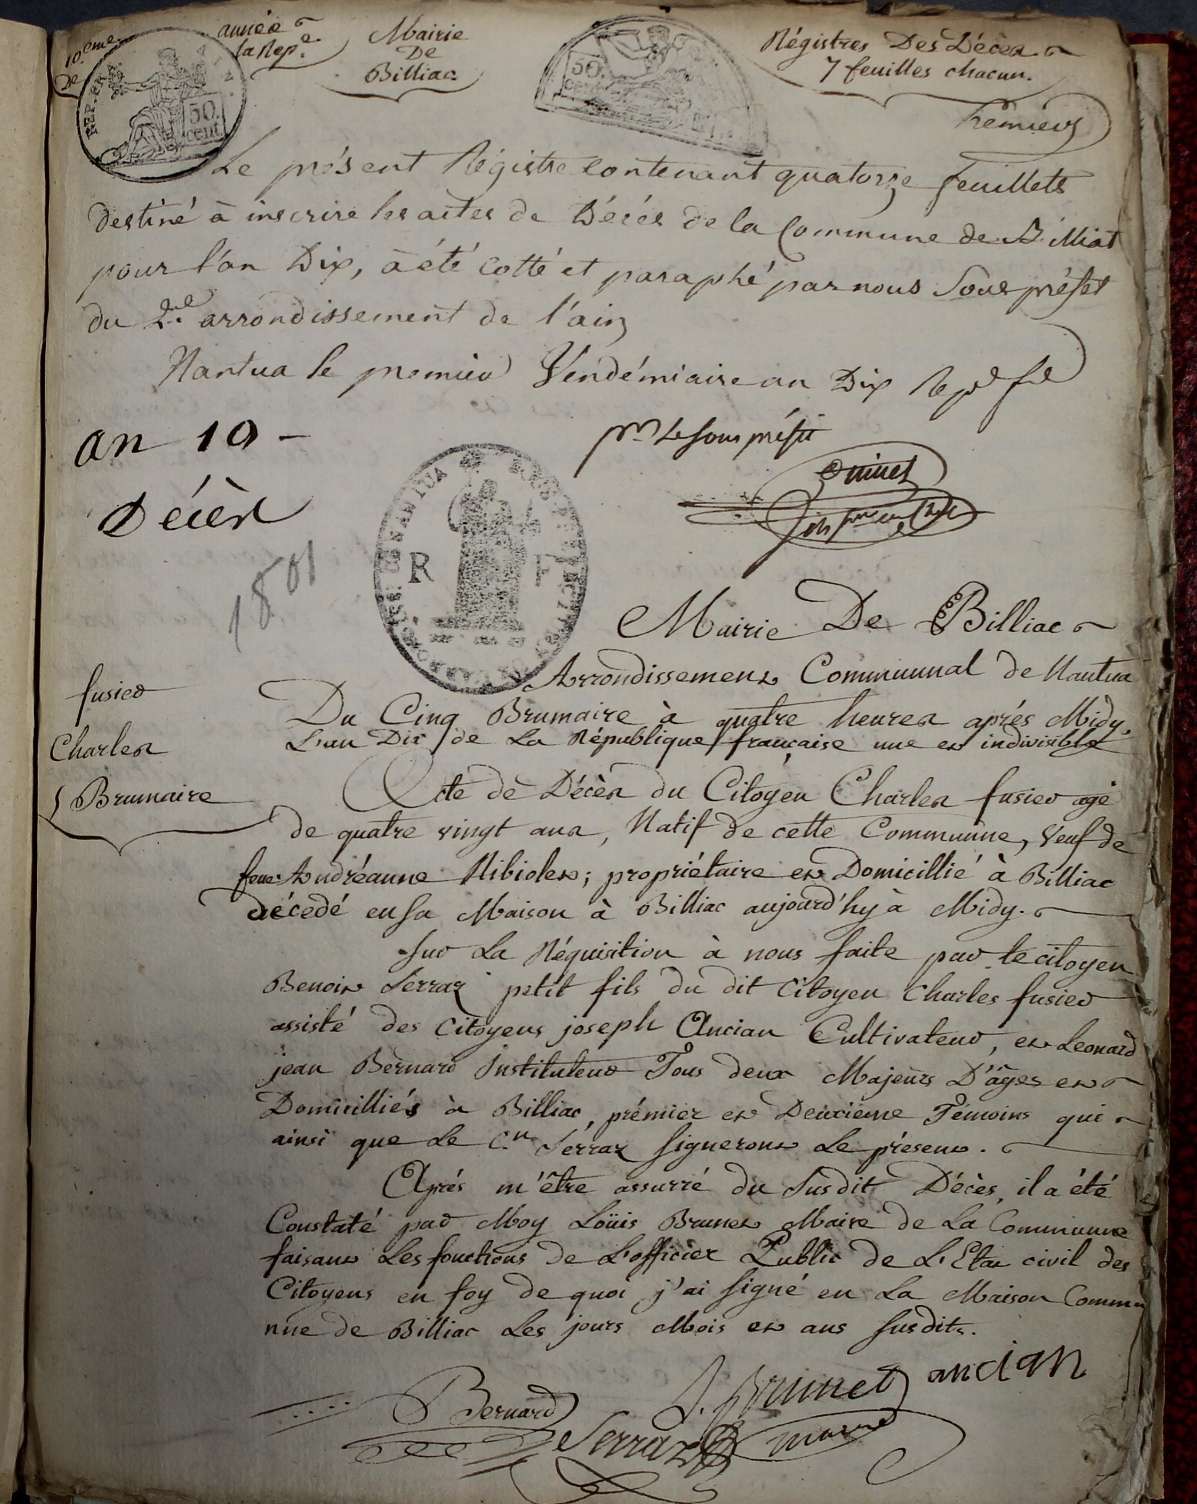 10.eme année
De la Rep.e
Mairie
De
Billiac
Régistres Des Décés
7 feuilles chacun.
premiers
REP. FRA
50.
cent
50.
cent
Le présent Régistre contenant quatorze feuillets
destiné à inscrire les actes de Décés de la Commune de Billiat
pour l'an Dix, à été cotté et paraphé par nous Sous préfet
du 2.me arrondissement de l'ain
Nantua le premier Vendémiaire an Dix
an 10 -
pr. Le sous préfet
Décès
R F
1801
Mairie De Billiac
Arrondissement Communnal de Nantua
fusier
Charles
5 Brumaire
Du Cinq Brumaire à quatre heures aprés Midy.
L'an Dix de La République française une et indivisible
Acte de Décès du Citoyen Charles fusier agé
de quatre vingt ans, Natif de cette Commune, veuf de
feue Andréanne Nibiolet; propriétaire et Domicillié à Billiac
décedé en sa Maison à Billiac aujourd'hy à Midy.
Sur La Réquisition à nous faite par le citoyen
Benoit Serraz petit fils du dit Citoyen Charles fusier
assisté des Citoyens joseph Ancian Cultivateur, et Leonard
jean Bernard Instituteur Tous deux Majeurs D'âges et
Domicilliés à Billiac, prémier et Deuxième Témoins qui
ainsi que Le C.en Serraz signeront Le présent.
Aprés m'être assurré du Susdit Décès, il a été
Constaté par Moy Loüis Brunet Maire de La Commune
faisant Les fonctions de L'officier Public de L'Etat civil des
Citoyens en foy de quoi j'ai signé en La Maison Commu
nne de Billiac Les jours Mois et ans susdits.
Bernard
Serraz
L. Brunet
maire
ancian